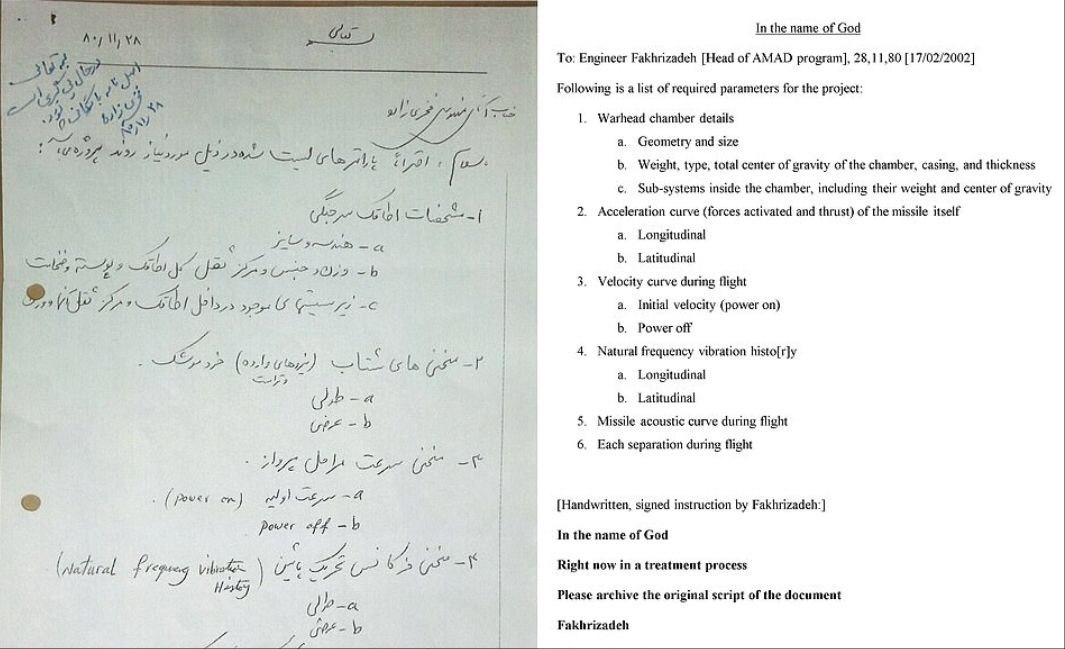 تعالی
۸۰/۱۱/۲۸
بسم تعالی
در حال پی گیری است
اصل نامه بایگانی شود.
فخری زاده
۸۰/۱۱/۲۸
جناب آقای مهندس فخری زاده
سلام، احتراماً پارامترهای لیست شده در ذیل مورد نیاز روند پروژه می‌باشد:
۱- مشخصات اطاقک سرجنگی
a - هندسه و سایز
b - وزن و جنس و مرکز ثقل کل اطاقک و پوسته و ضخامت
c - زیر سیستمهای موجود در داخل اطاقک و مرکز ثقل آنها و وزن
۲- منحنی های شتاب (نیروهای وارده) خود موشک.
و تراست
a - طولی
b - عرضی
۳- منحنی سرعت مراحل پرواز.
a - سرعت اولیه (power on).
b - power off
۴- منحنی فرکانس تحریک پائین (Natural frequency vibration
History)
a - طولی
b - عرضی
In the name of God
To: Engineer Fakhrizadeh [Head of AMAD program], 28,11,80 [17/02/2002]
Following is a list of required parameters for the project:
1. Warhead chamber details
a. Geometry and size
b. Weight, type, total center of gravity of the chamber, casing, and thickness
c. Sub-systems inside the chamber, including their weight and center of gravity
2. Acceleration curve (forces activated and thrust) of the missile itself
a. Longitudinal
b. Latitudinal
3. Velocity curve during flight
a. Initial velocity (power on)
b. Power off
4. Natural frequency vibration histo[r]y
a. Longitudinal
b. Latitudinal
5. Missile acoustic curve during flight
6. Each separation during flight
[Handwritten, signed instruction by Fakhrizadeh:]
In the name of God
Right now in a treatment process
Please archive the original script of the document
Fakhrizadeh